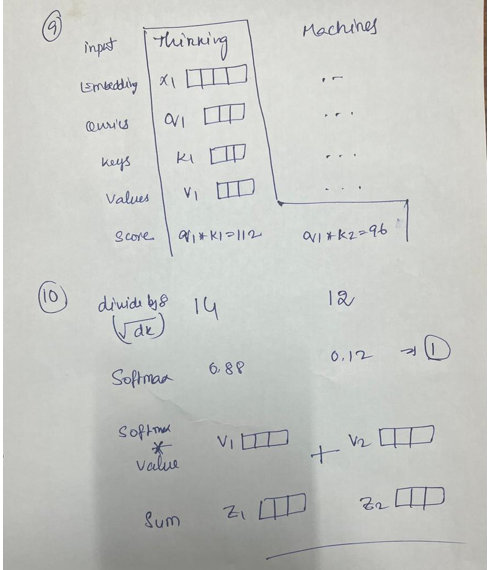 9
input Thinking Machines
Embedding x1 . . -
Quries q1 . . .
Keys K1 . . .
Values V1 . . .
Score q1 * K1 = 112 q1 * K2 = 96
10
divide by 8 14 12
(√dk)
Softmax 0.88 0.12 → 1
Softmax
*
Value V1 + V2
Sum Z1 Z2